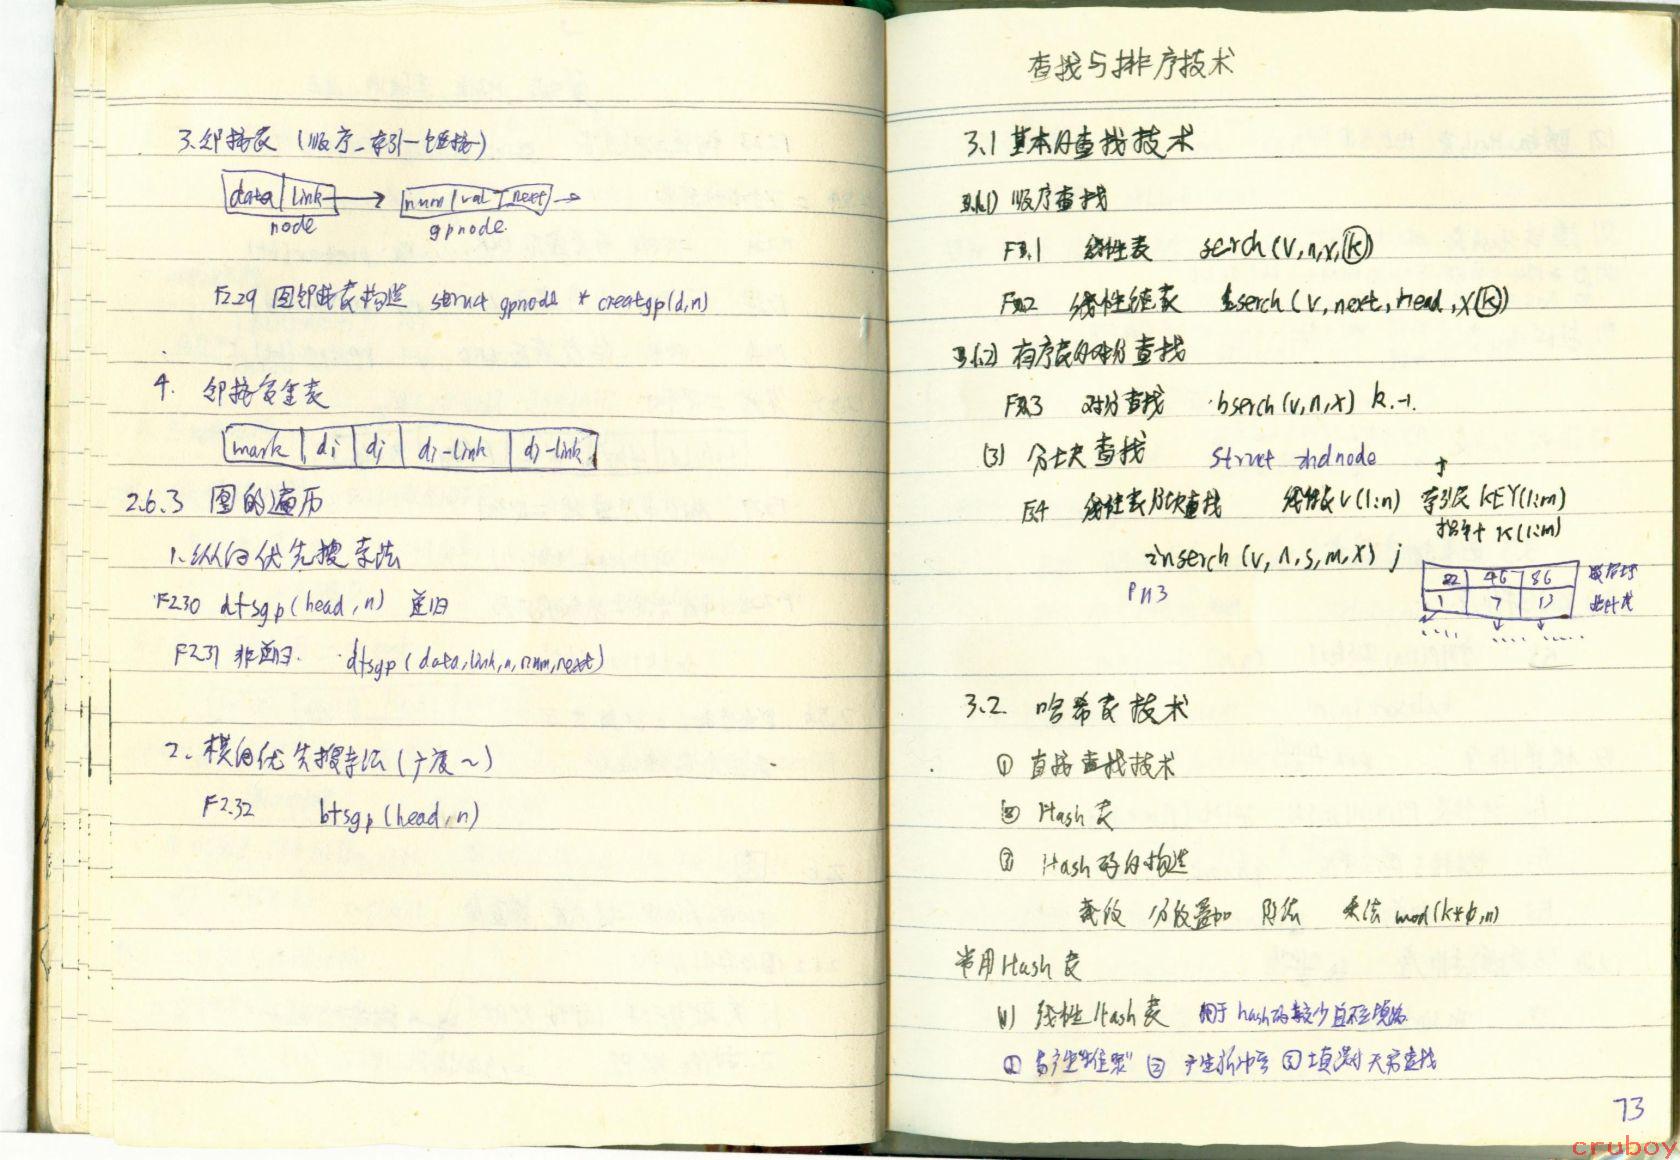 3.邻接表 (顺序—索引—链接)
data | link
node
num | val | next
gpnode
F2.29 图邻接表构造 struct gpnode * creatgp(d,n)
4. 邻接多重表
mark | di | dj | di-link | dj-link
2.6.3 图的遍历
1.纵向优先搜索法
F2.30 dfsgp(head,n) 递归
F2.31 非递归. dfsgp(data,link,n,num,next)
2. 横向优先搜索法(广度~)
F2.32 bfsgp(head,n)
查找与排序技术
3.1 基本的查找技术
顺序查找
F3.1 线性表 serch(v,n,x,k)
线性链表 serch(v,next,head,x,k)
有序表的对分查找
对分查找 bserch(v,n,x) k.-1.
(3) 分块查找 struct indnode
线性表分块查找 线性表V(1:n) 索引表 KEY(1:m)
指针 K(1:m)
inserch(v,n,s,m,x) j
P113
22 | 46 | 86
1 | 7 | 13
3.2 哈希表技术
① 直接查找技术
② Hash 表
③ Hash 码的构造
截段 分段叠加 除法 乘法 mod(k*φ,n)
常用Hash 表
(1) 线性Hash表 用于hash码较少且不会填满
① 易产生"堆聚" ② 产生新冲突 ③ 填满时无穷查找
73
cruboy